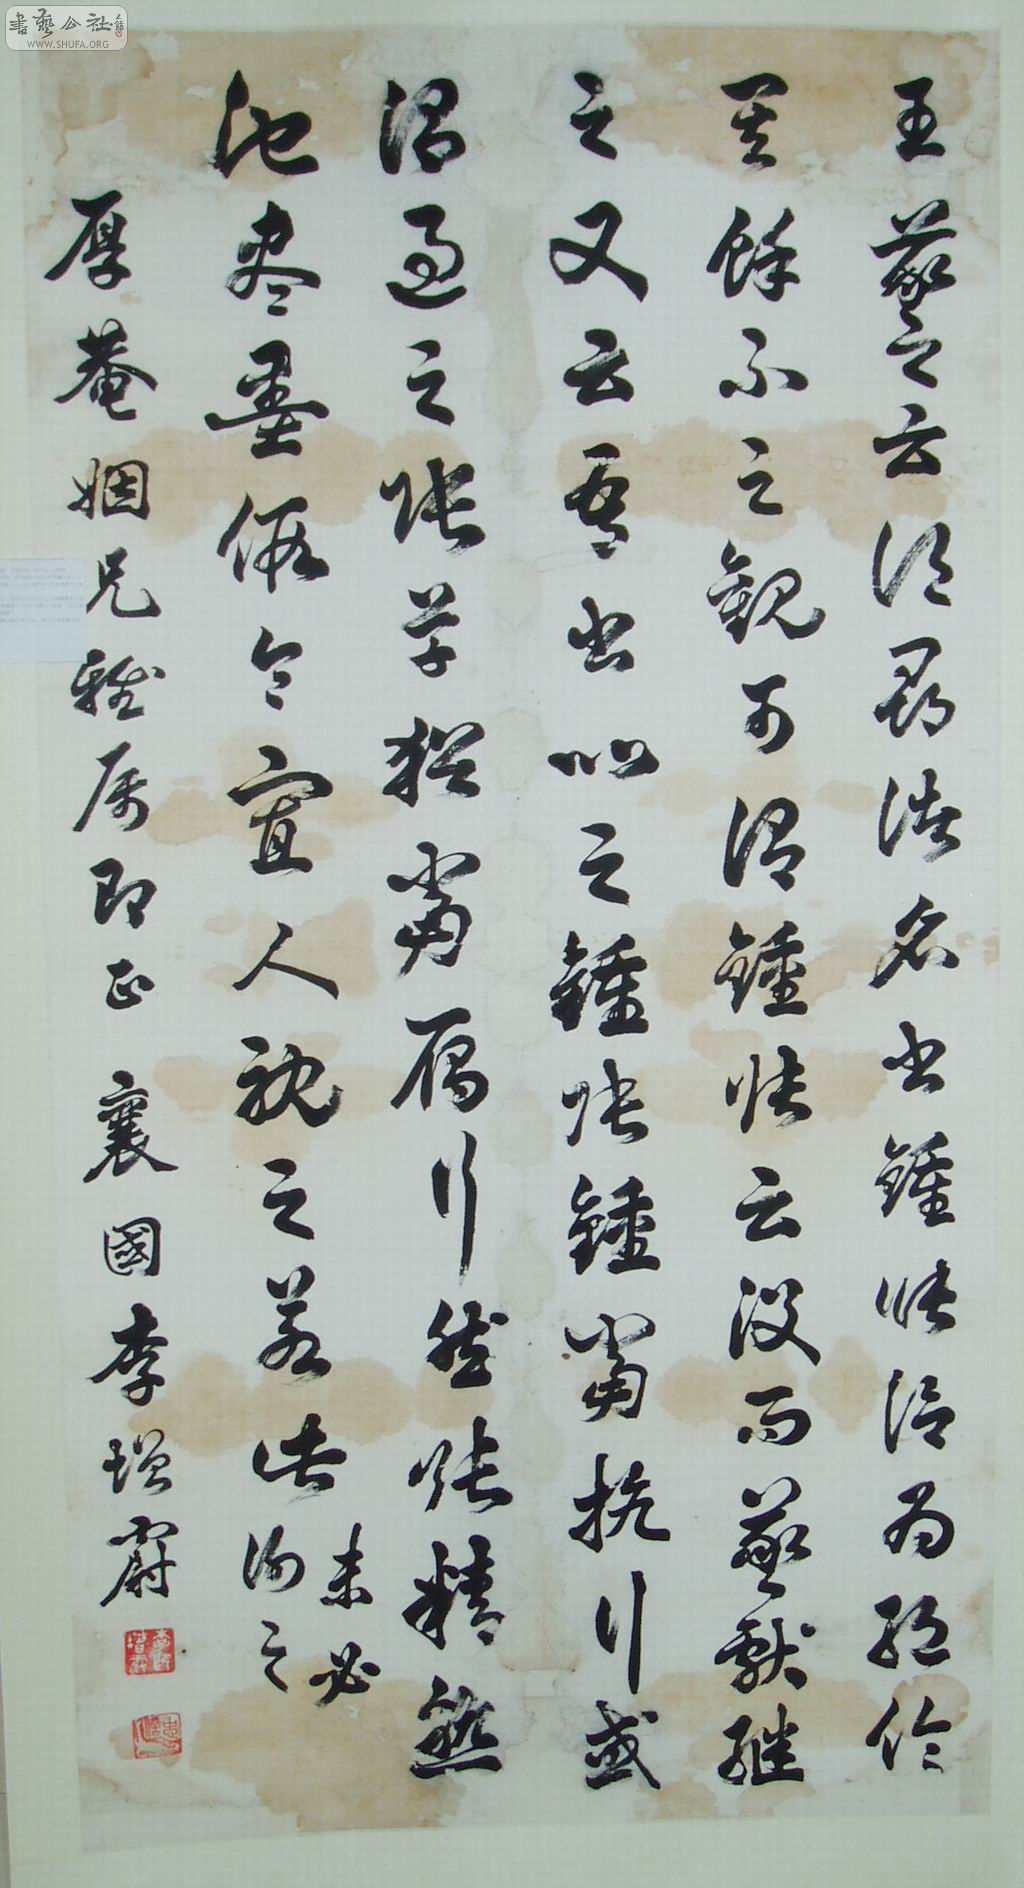 書藝公社
WWW.SHUFA.ORG
王羲之云頃尋諸名書鍾張信為絕倫
其餘不足觀可謂鍾張云沒而羲獻繼
之又云吾書比之鍾張鍾當抗行或
謂過之張草猶當雁行然張精熟
池尽墨假令寡人耽之若此未必
謝之
厚菴姻兄雅属即正 襄國李增蔚